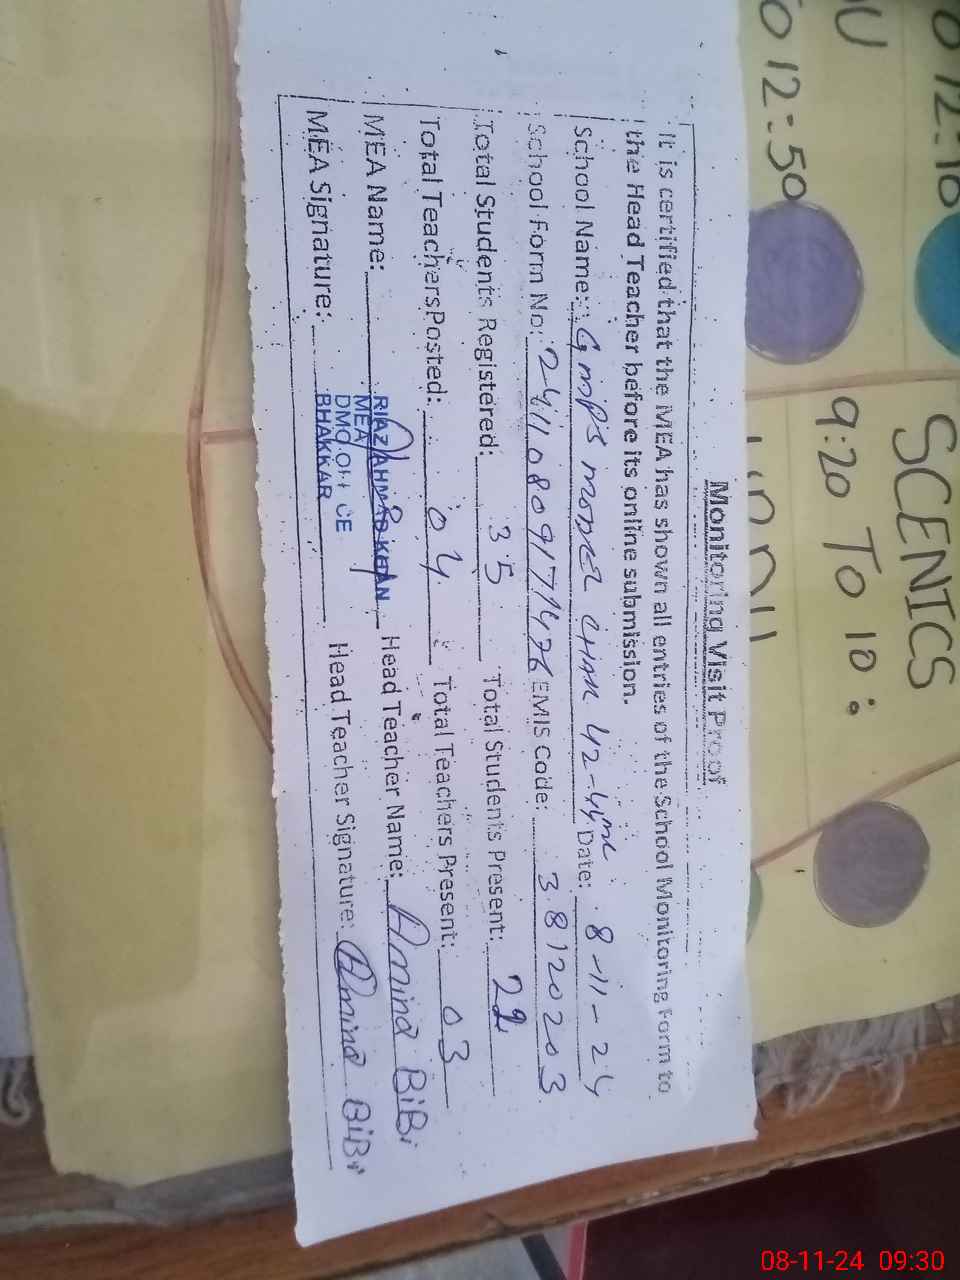 Monitoring Visit Proof
It is certified that the MEA has shown all entries of the School Monitoring Form to
the Head Teacher before its online submission.
School Name: GMPS MODEL CHAK 42-43ML Date: 8-11-24
School Form No: 241108091771476 EMIS Code: 38120203
Total Students Registered: 35 Total Students Present: 22
Total Teachers Posted: 04 Total Teachers Present: 03
MEA Name: RIAZ AHMAD KHAN Head Teacher Name: Amina BiBi
MEA
DMO OFFICE
BHAKKAR
MEA Signature: Head Teacher Signature: Amina BiBi
TO 12:10
TO 12:50
SCENICS
9:20 TO 10:
08-11-24 09:30